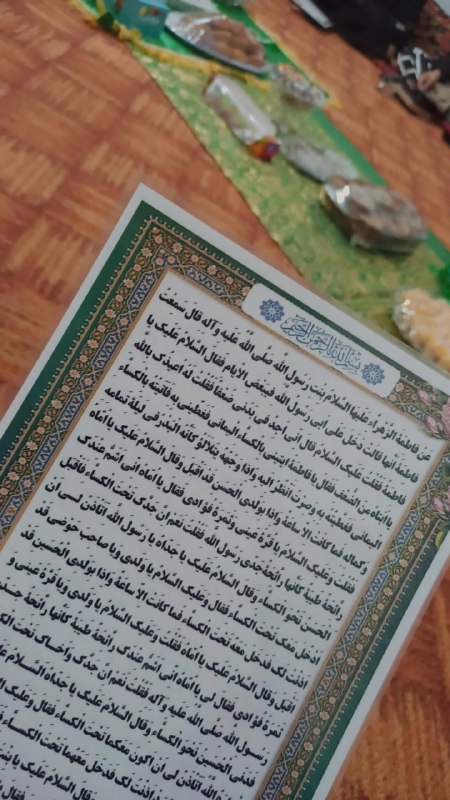 بسم الله الرحمن الرحیم
عَنْ فاطِمَةَ الزَّهْراءِ عَلَیْهَا السَّلامُ بِنْتِ رَسُولِ اللَّهِ صَلَّی اللَّهُ عَلَیْهِ وَآلِهِ قالَ سَمِعْتُ
فاطِمَةَ أنَّها قالَتْ دَخَلَ عَلَیَّ أبی رَسُولُ اللَّهِ فی بَعْضِ الاَیّامِ فَقالَ السَّلامُ عَلَیْکِ یا
فاطِمَةُ فَقُلْتُ عَلَیْکَ السَّلامُ قالَ اِنّی اَجِدُ فی بَدَنی ضُعْفاً فَقُلْتُ لَهُ اُعیذُکَ بِاللَّهِ
یا اَبَتاهُ مِنَ الضُّعْفِ فَقالَ یا فاطِمَةُ ایتینی بِالْکِساءِ الْیَمانی فَغَطّینی بِهِ فَاَتَیْتُهُ بِالْکِساءِ
الْیَمانی فَغَطَّیْتُهُ بِهِ وَصِرْتُ اَنْظُرُ اِلَیْهِ وَاِذا وَجْهُهُ یَتَلَاْلَؤُ کَاَنَّهُ الْبَدْرُ فی لَیْلَةِ تَمامِهِ
وَکَمالِهِ فَما کانَتْ اِلاّ ساعَةً وَاِذا بِوَلَدِیَ الْحَسَنِ قَدْ اَقْبَلَ وَقالَ السَّلامُ عَلَیْکِ یا اُمّاهُ
فَقُلْتُ وَعَلَیْکَ السَّلامُ یا قُرَّةَ عَیْنی وَثَمَرَةَ فُؤادی فَقالَ یا اُمّاهُ اِنّی اَشَمُّ عِنْدَکِ
رائِحَةً طَیِّبَةً کَاَنَّها رائِحَةُ جَدّی رَسُولِ اللَّهِ فَقُلْتُ نَعَمْ اِنَّ جَدَّکَ تَحْتَ الْکِساءِ فَاَقْبَلَ
الْحَسَنُ نَحْوَ الْکِساءِ وَقالَ السَّلامُ عَلَیْکَ یا جَدّاهُ یا رَسُولَ اللَّهِ اَتَاْذَنُ لی اَنْ
اَدْخُلَ مَعَکَ تَحْتَ الْکِساءِ فَقالَ وَعَلَیْکَ السَّلامُ یا وَلَدی وَیا صاحِبَ حَوْضی قَدْ
اَذِنْتُ لَکَ فَدَخَلَ مَعَهُ تَحْتَ الْکِساءِ فَما کانَتْ اِلاّ ساعَةً وَاِذا بِوَلَدِیَ الْحُسَیْنِ قَدْ
اَقْبَلَ وَقالَ السَّلامُ عَلَیْکِ یا اُمّاهُ فَقُلْتُ وَعَلَیْکَ السَّلامُ یا وَلَدی وَیا قُرَّةَ عَیْنی وَ
ثَمَرَةَ فُؤادی فَقالَ لی یا اُمّاهُ اِنّی اَشَمُّ عِنْدَکِ رائِحَةً طَیِّبَةً کَاَنَّها رائِحَةُ
رَسُولِ اللَّهِ صَلَّی اللَّهُ عَلَیْهِ وَآلِهِ فَقُلْتُ نَعَمْ اِنَّ جَدَّکَ وَاَخاکَ تَحْتَ
فَدَنَی الْحُسَیْنُ نَحْوَ الْکِساءِ وَقالَ السَّلامُ عَلَیْکَ یا جَدّاهُ
اَتَاْذَنُ لی اَنْ اَکُونَ مَعَکُما تَحْتَ الْکِساءِ فَقالَ وَعَلَیْکَ
اَذِنْتُ لَکَ فَدَخَلَ مَعَهُما تَحْتَ الْکِساءِ
وَقالَ السَّلامُ عَلَیْکِ یا